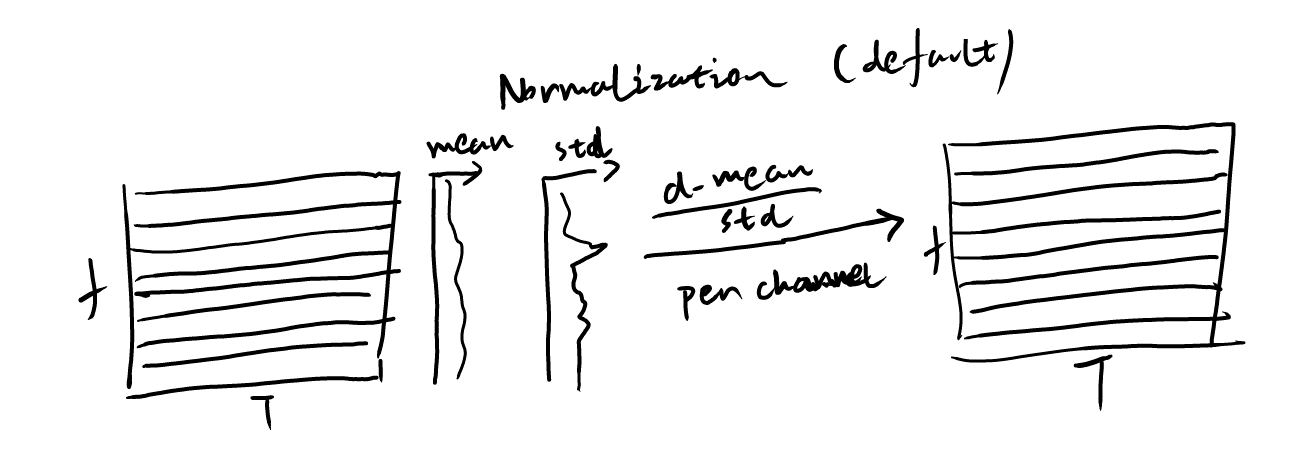 Normalization (default)
mean
std
d-mean
std
per channel
f
T
f
T